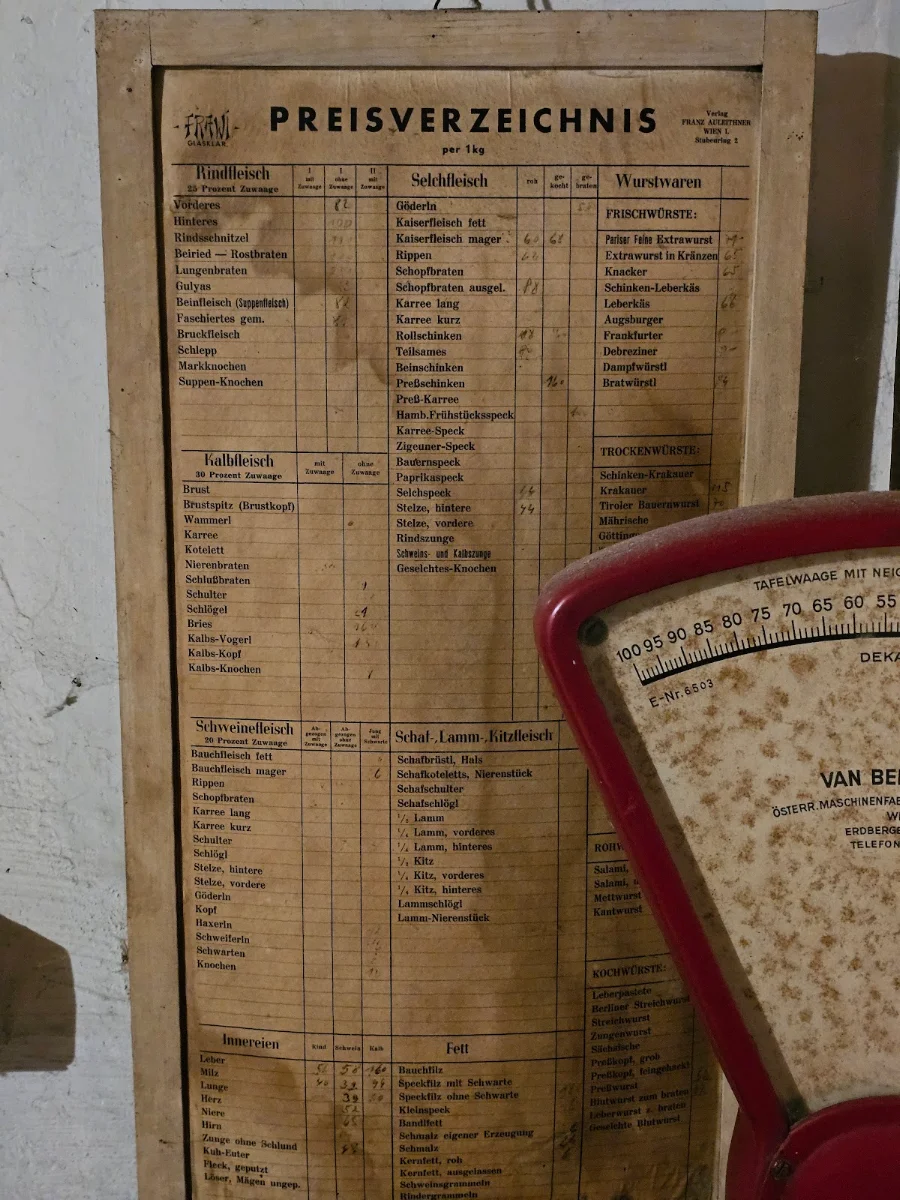 FRAWI
GLASKLAR
PREISVERZEICHNIS
per 1kg
Verlag
FRANZ AULEITHNER
WIEN I.
Stubenring 2
Rindfleisch
25 Prozent Zuwaage
I
mit
Zuwaage
I
ohne
Zuwaage
II
mit
Zuwaage
Vorderes 82
Hinteres
Rindsschnitzel
Beiried — Rostbraten
Lungenbraten
Gulyas
Beinfleisch (Suppenfleisch)
Faschiertes gem.
Bruckfleisch
Schlepp
Markknochen
Suppen-Knochen
Kalbfleisch
30 Prozent Zuwaage
mit
Zuwaage
ohne
Zuwaage
Brust
Brustspitz (Brustkopf)
Wammerl
Karree
Kotelett
Nierenbraten
Schlußbraten
Schulter
Schlögel
Bries
Kalbs-Vogerl
Kalbs-Kopf
Kalbs-Knochen
Schweinefleisch
20 Prozent Zuwaage
Ab-
gezogen
mit
Zuwaage
Ab-
gezogen
ohne
Zuwaage
Jung
mit
Schwarte
Bauchfleisch fett
Bauchfleisch mager
Rippen
Schopfbraten
Karree lang
Karree kurz
Schulter
Schlögl
Stelze, hintere
Stelze, vordere
Göderln
Kopf
Haxerln
Schweiferln
Schwarten
Knochen
Innereien
Rind
Schwein
Kalb
Leber
Milz
Lunge
Herz
Niere
Hirn
Zunge ohne Schlund
Kuh-Euter
Fleck, geputzt
Löser, Mägen ungep.
Selchfleisch
roh
ge-
kocht
ge-
braten
Göderln
Kaiserfleisch fett
Kaiserfleisch mager
Rippen
Schopfbraten
Schopfbraten ausgel. 88
Karree lang
Karree kurz
Rollschinken
Teilsames
Beinschinken
Preßschinken
Preß-Karree
Hamb.Frühstücksspeck
Karree-Speck
Zigeuner-Speck
Bauernspeck
Paprikaspeck
Selchspeck
Stelze, hintere 44
Stelze, vordere
Rindszunge
Schweins- und Kalbszunge
Geselchtes-Knochen
Schaf-, Lamm-, Kitzfleisch
Schafbrüstl, Hals
Schafkoteletts, Nierenstück
Schafschulter
Schafschlögl
½ Lamm
¼ Lamm, vorderes
¼ Lamm, hinteres
½ Kitz
¼ Kitz, vorderes
¼ Kitz, hinteres
Lammschlögl
Lamm-Nierenstück
Fett
Bauchfilz
Speckfilz mit Schwarte
Speckfilz ohne Schwarte
Kleinspeck
Bandlfett
Schmalz eigener Erzeugung
Schmalz
Kernfett, roh
Kernfett, ausgelassen
Schweinsgrammeln
Rindergrammeln
Wurstwaren
FRISCHWÜRSTE:
Pariser Feine Extrawurst
Extrawurst in Kränzen
Knacker
Schinken-Leberkäs
Leberkäs 68
Augsburger
Frankfurter
Debreziner
Dampfwürstl
Bratwürstl
TROCKENWÜRSTE:
Schinken-Krakauer
Krakauer
Tiroler Bauernwurst
Mährische
Götting
ROHW
Salami,
Salami,
Mettwurst
Kantwurst
KOCHWÜRSTE:
Leberpastete
Berliner Streichwurst
Streichwurst
Zungenwurst
Sächsische
Preßkopf, grob
Preßkopf, feingehackt
Preßwurst
Blutwurst zum braten
Leberwurst z. braten
Geselchte Blutwurst
TAFELWAAGE MIT NEIG
100 95 90 85 80 75 70 65 60 55
DEKA
E-Nr. 6503
VAN BE
ÖSTERR. MASCHINENFA
WI
ERDBERGE
TELEFON